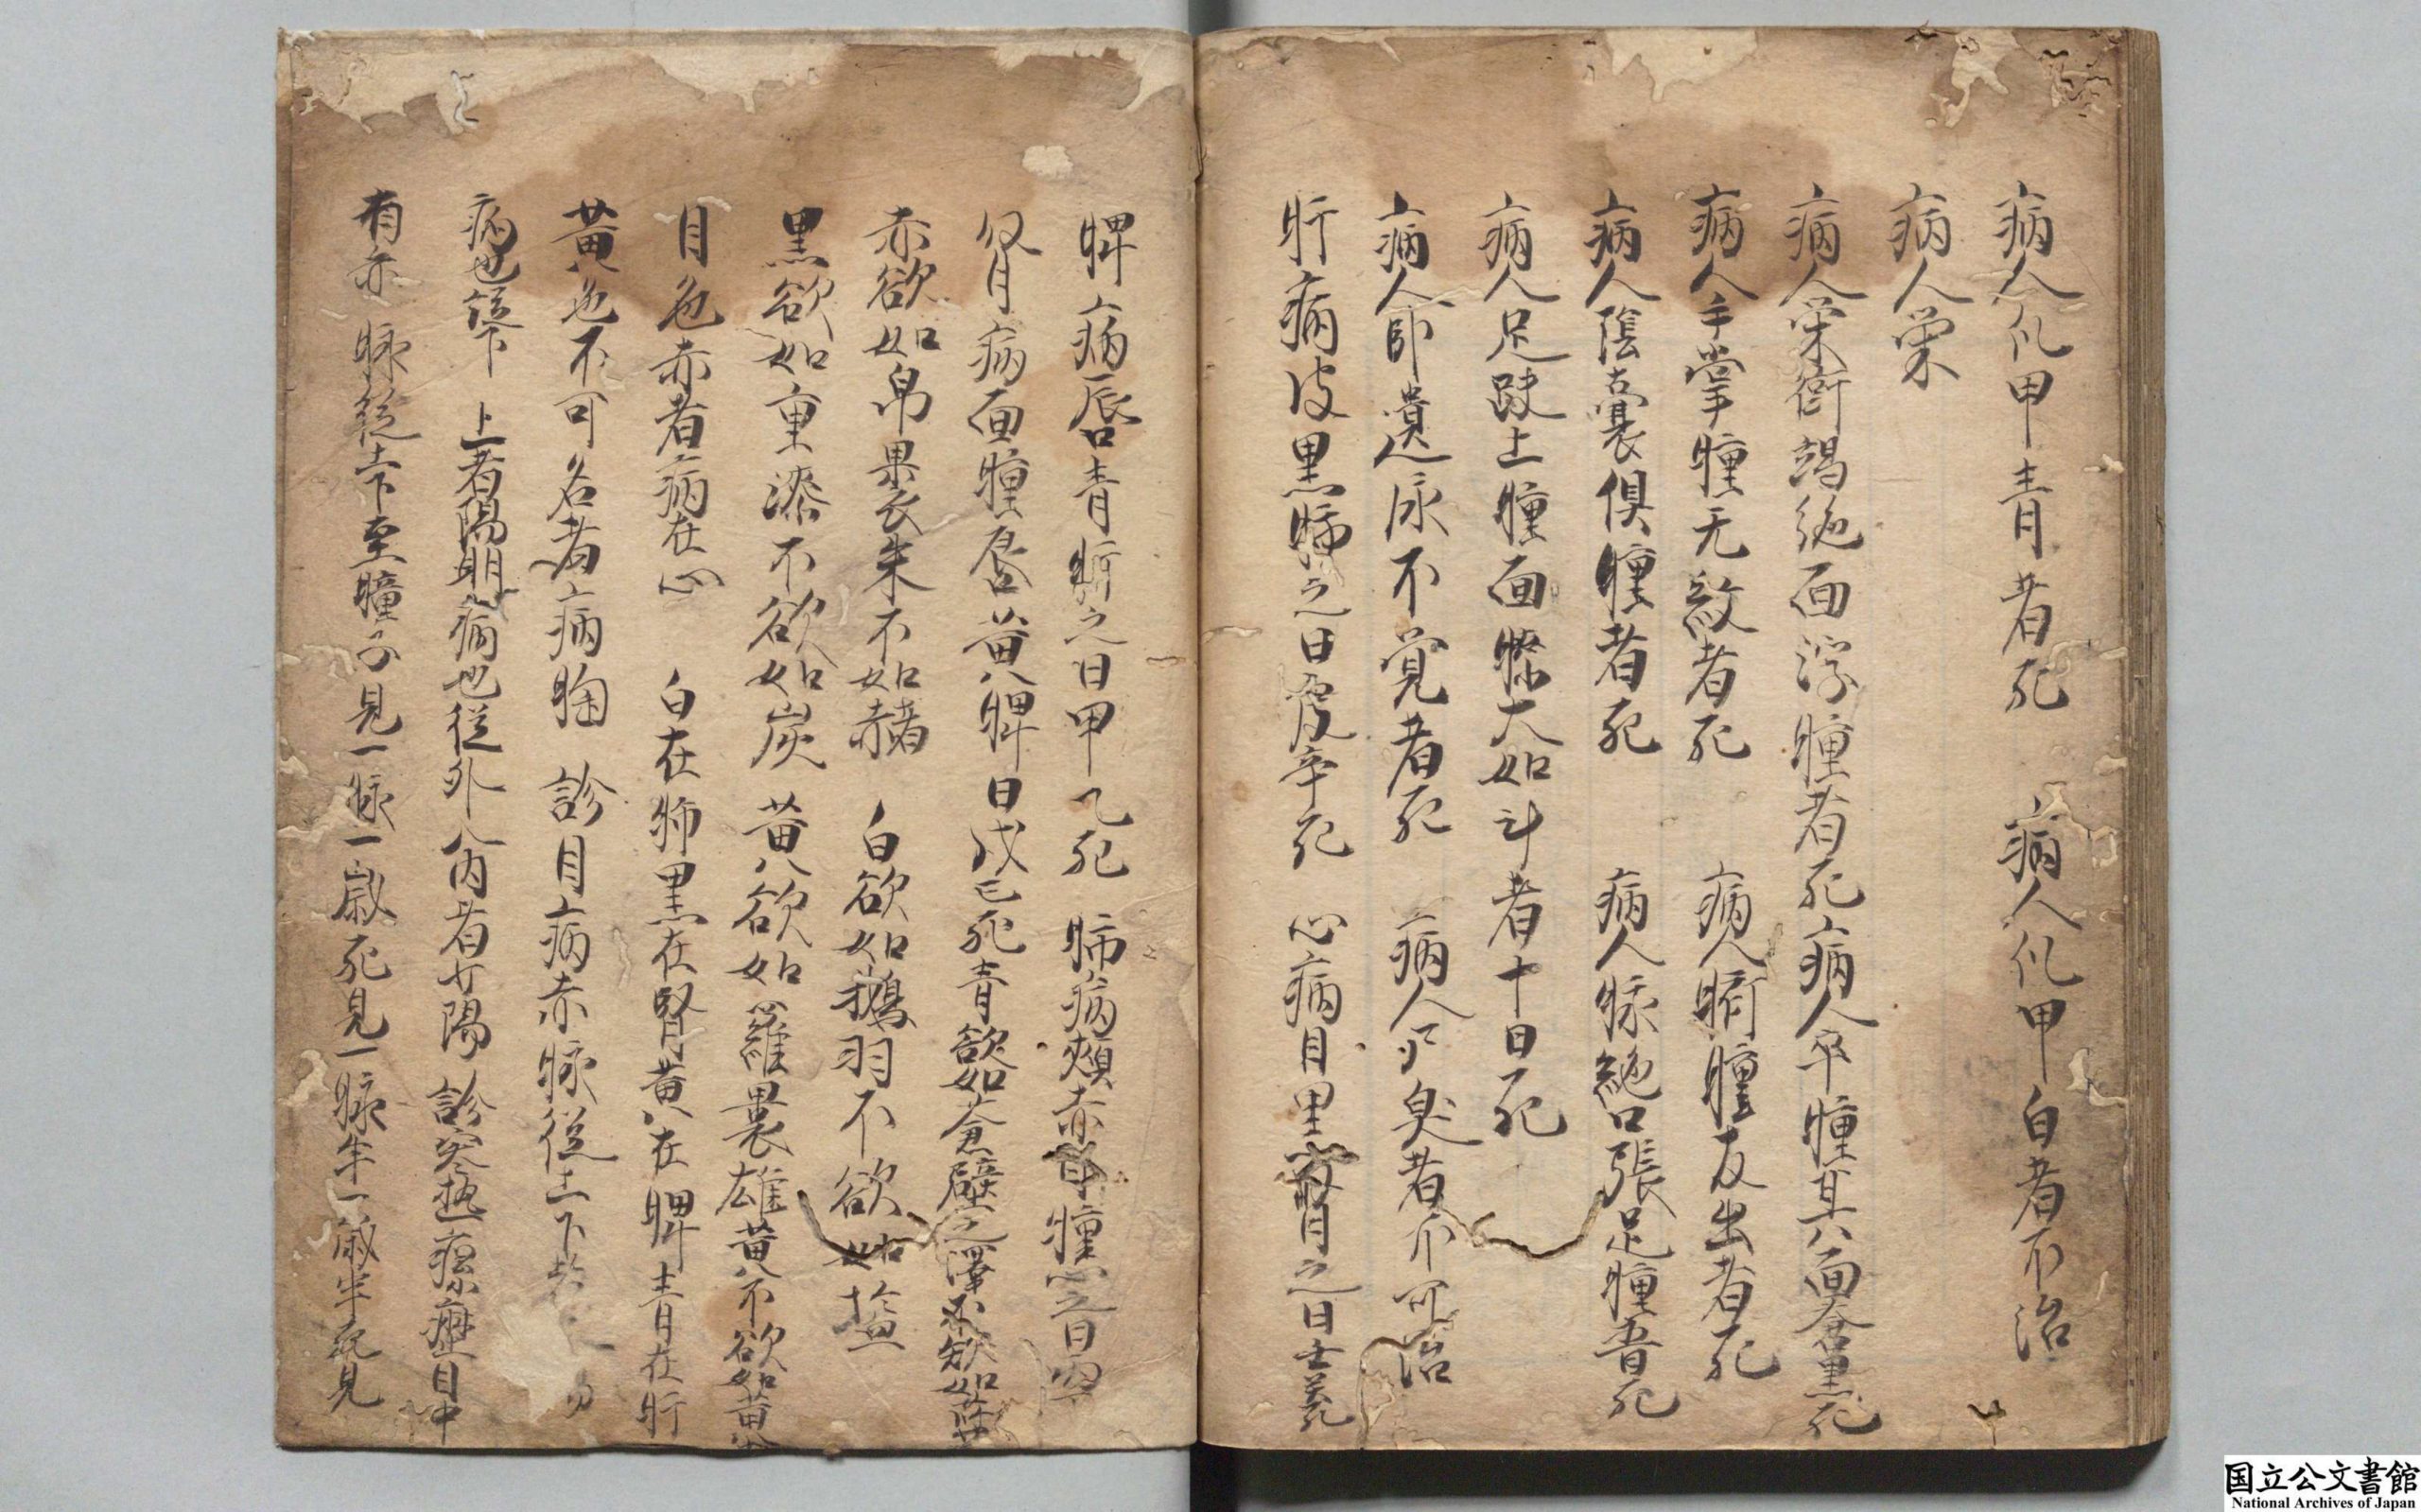 病人爪甲青者死　病人爪甲白者不治
病人栄
病人栄衛竭絶面浮腫者死病人卒腫其面蒼黒死
病人手掌腫无紋者死　病人臍腫反出者死
病人陰嚢倶腫者死　病人脉絶口張足腫者死
病人足趺上腫面膝大如斗者十日死
病人臥遺尿不覚者死　病人尸臭者不可治
肝病皮黒肺之日庚辛死　心病目黒腎之日壬癸死
脾病唇青肝之日甲乙死　肺病頬赤目腫心之日
腎病面腫唇黄脾日戊己死青欲如蒼壁之澤不欲如
赤欲如帛裹朱不如赭　白欲如鵝羽不欲如塩
黒欲如重漆不欲如炭　黄欲如羅裹雄黄不欲如黄
目色赤者病在心　白在肺黒在腎黄在脾青在肝
黄色不可名者病胸　診目病赤脉従上下
病也従下上者陽明病也従外入内者少陽　診寒熱瘰癧目中
有赤脉従上下至瞳子見一脉一歳死見一脉半一歳半死見
国立公文書館
National Archives of Japan